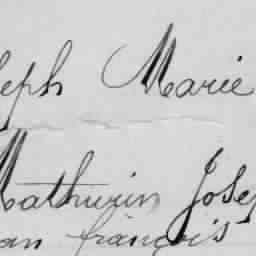 seph Marie
Mathurin Josep
an françois